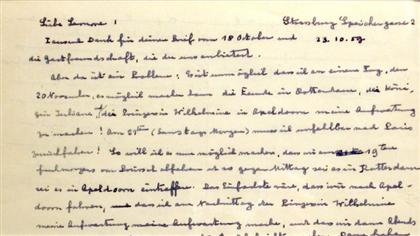 Liebe Lenore! Strassburg Speichergasse 2
Tausend Dank für deine Brief vom 18 Oktober und 23.10.59
die Gastfreundschaft, die du uns anbietest.
Aber da ist ein Problem: Es ist unmöglich dass ich an einem Tag, den
20 November, es möglich machen kann die Freunde in Rotterdam, die Köni-
gin Juliana & die Prinzessin Wilhelmine in Apeldoorn meine Aufwartung
zu machen! Am 21ten (Samstag Morgen) muss ich unfehlbar nach Paris
zurückfahren! So will ich es nun möglich machen, dass wir am 19ten
frühmorgens von Brüssel abfahren und es gegen Mittag sei es in Rotterdam
sei es in Apeldoorn eintreffen. Das Einfachste wäre, dass wir nach Apel-
doorn fahren, und dass ich am Nachmittag der Prinzess Wilhelmine
meine Aufwartung meine Aufwartung mache, und dass wir dann Abends